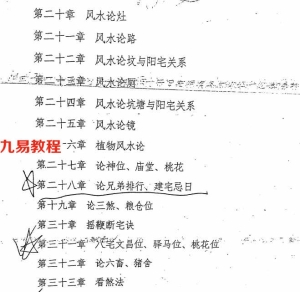 第二十章 风水论灶
第二十一章 风水论路
第二十二章 风水论坟与阳宅关系
第二十三章 风水论厕
第二十四章 风水论坑塘与阳宅关系
第二十五章 风水论镜
九易教程
六章 植物风水论
第二十七章 论神位、庙堂、桃花
第二十八章 论兄弟排行、建宅忌日
第十九章 论三煞、粮仓位
第三十章 摇鞭断宅诀
第三十一章 八宅文昌位、驿马位、桃花位
第三十二章 论六畜、猪舍
第三十三章 看煞法